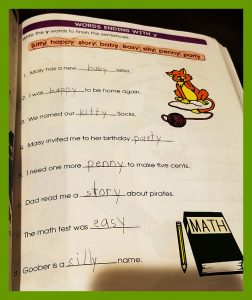 WORDS ENDING WITH y
the y words to finish the sentences.
kitty happy story baby easy silly penny party
1. Molly has a new baby sister.
2. I was happy to be home again.
3. We named our kitty Socks.
4. Maisy invited me to her birthday party.
5. I need one more penny to make five cents.
6. Dad read me a story about pirates.
7. The math test was easy.
8. Goober is a silly name.
MATH